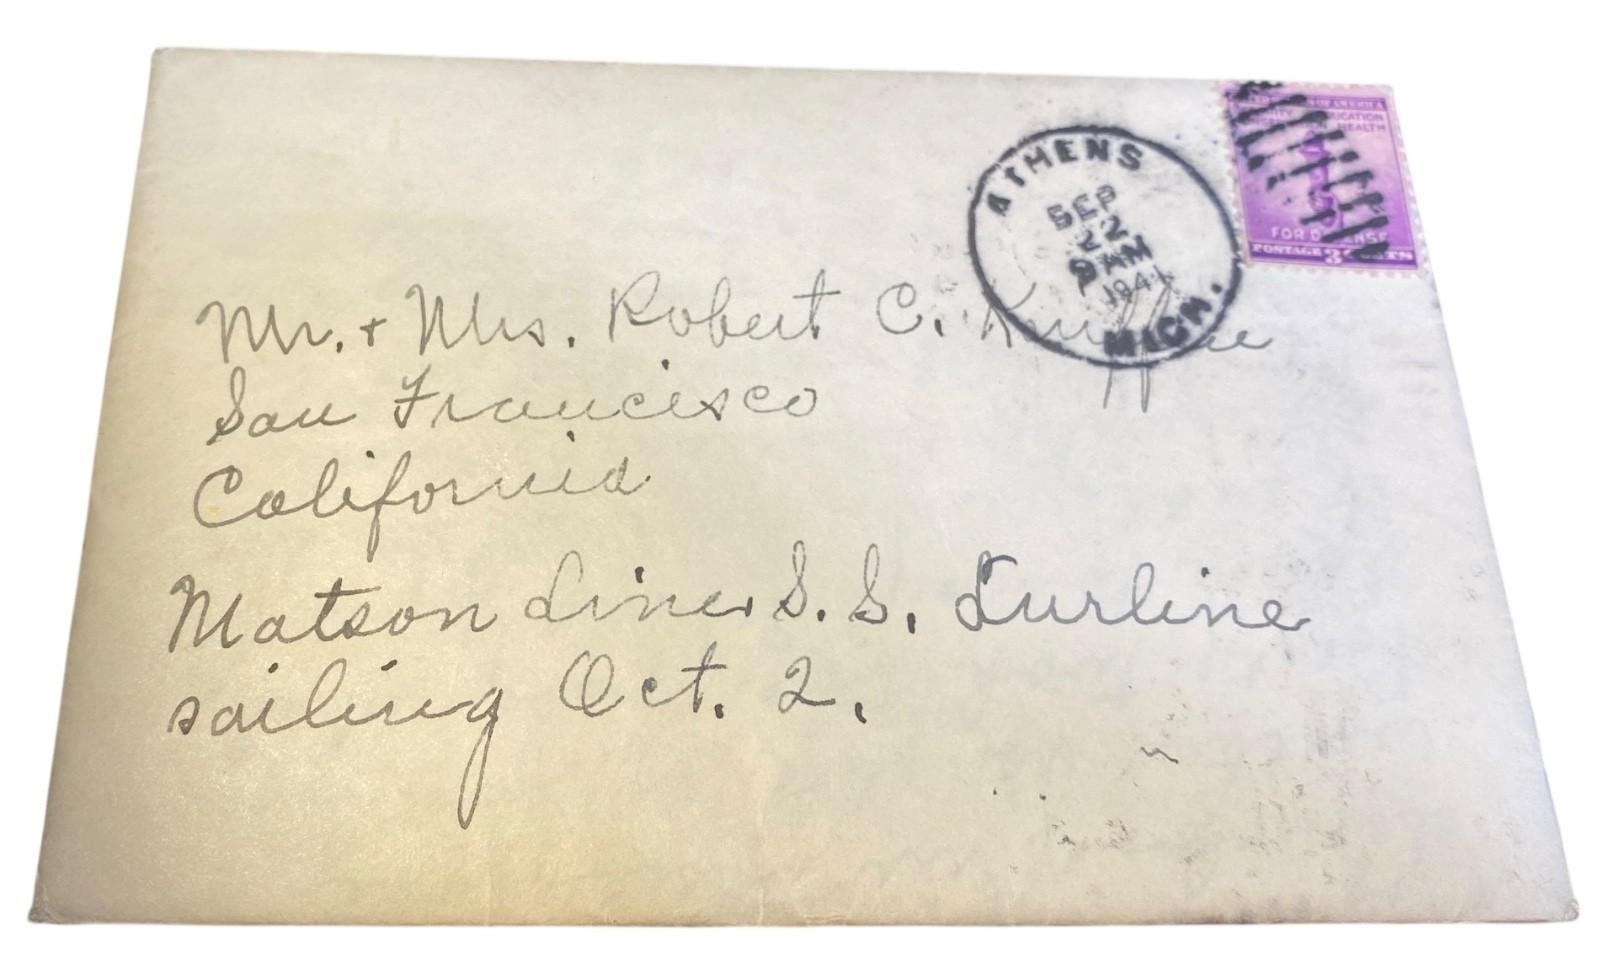 ATHENS
SEP
22
9 AM
1941
MICH.
OF AMERICA
FOR DEFENSE
POSTAGE 3 CENTS
Mr. + Mrs. Robert C.
San Francisco
California
Matson Liner S. S. Lurline
sailing Oct. 2.